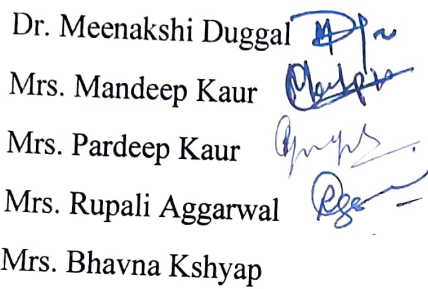 Dr. Meenakshi Duggal
Mrs. Mandeep Kaur
Mrs. Pardeep Kaur
Mrs. Rupali Aggarwal
Mrs. Bhavna Kshyap